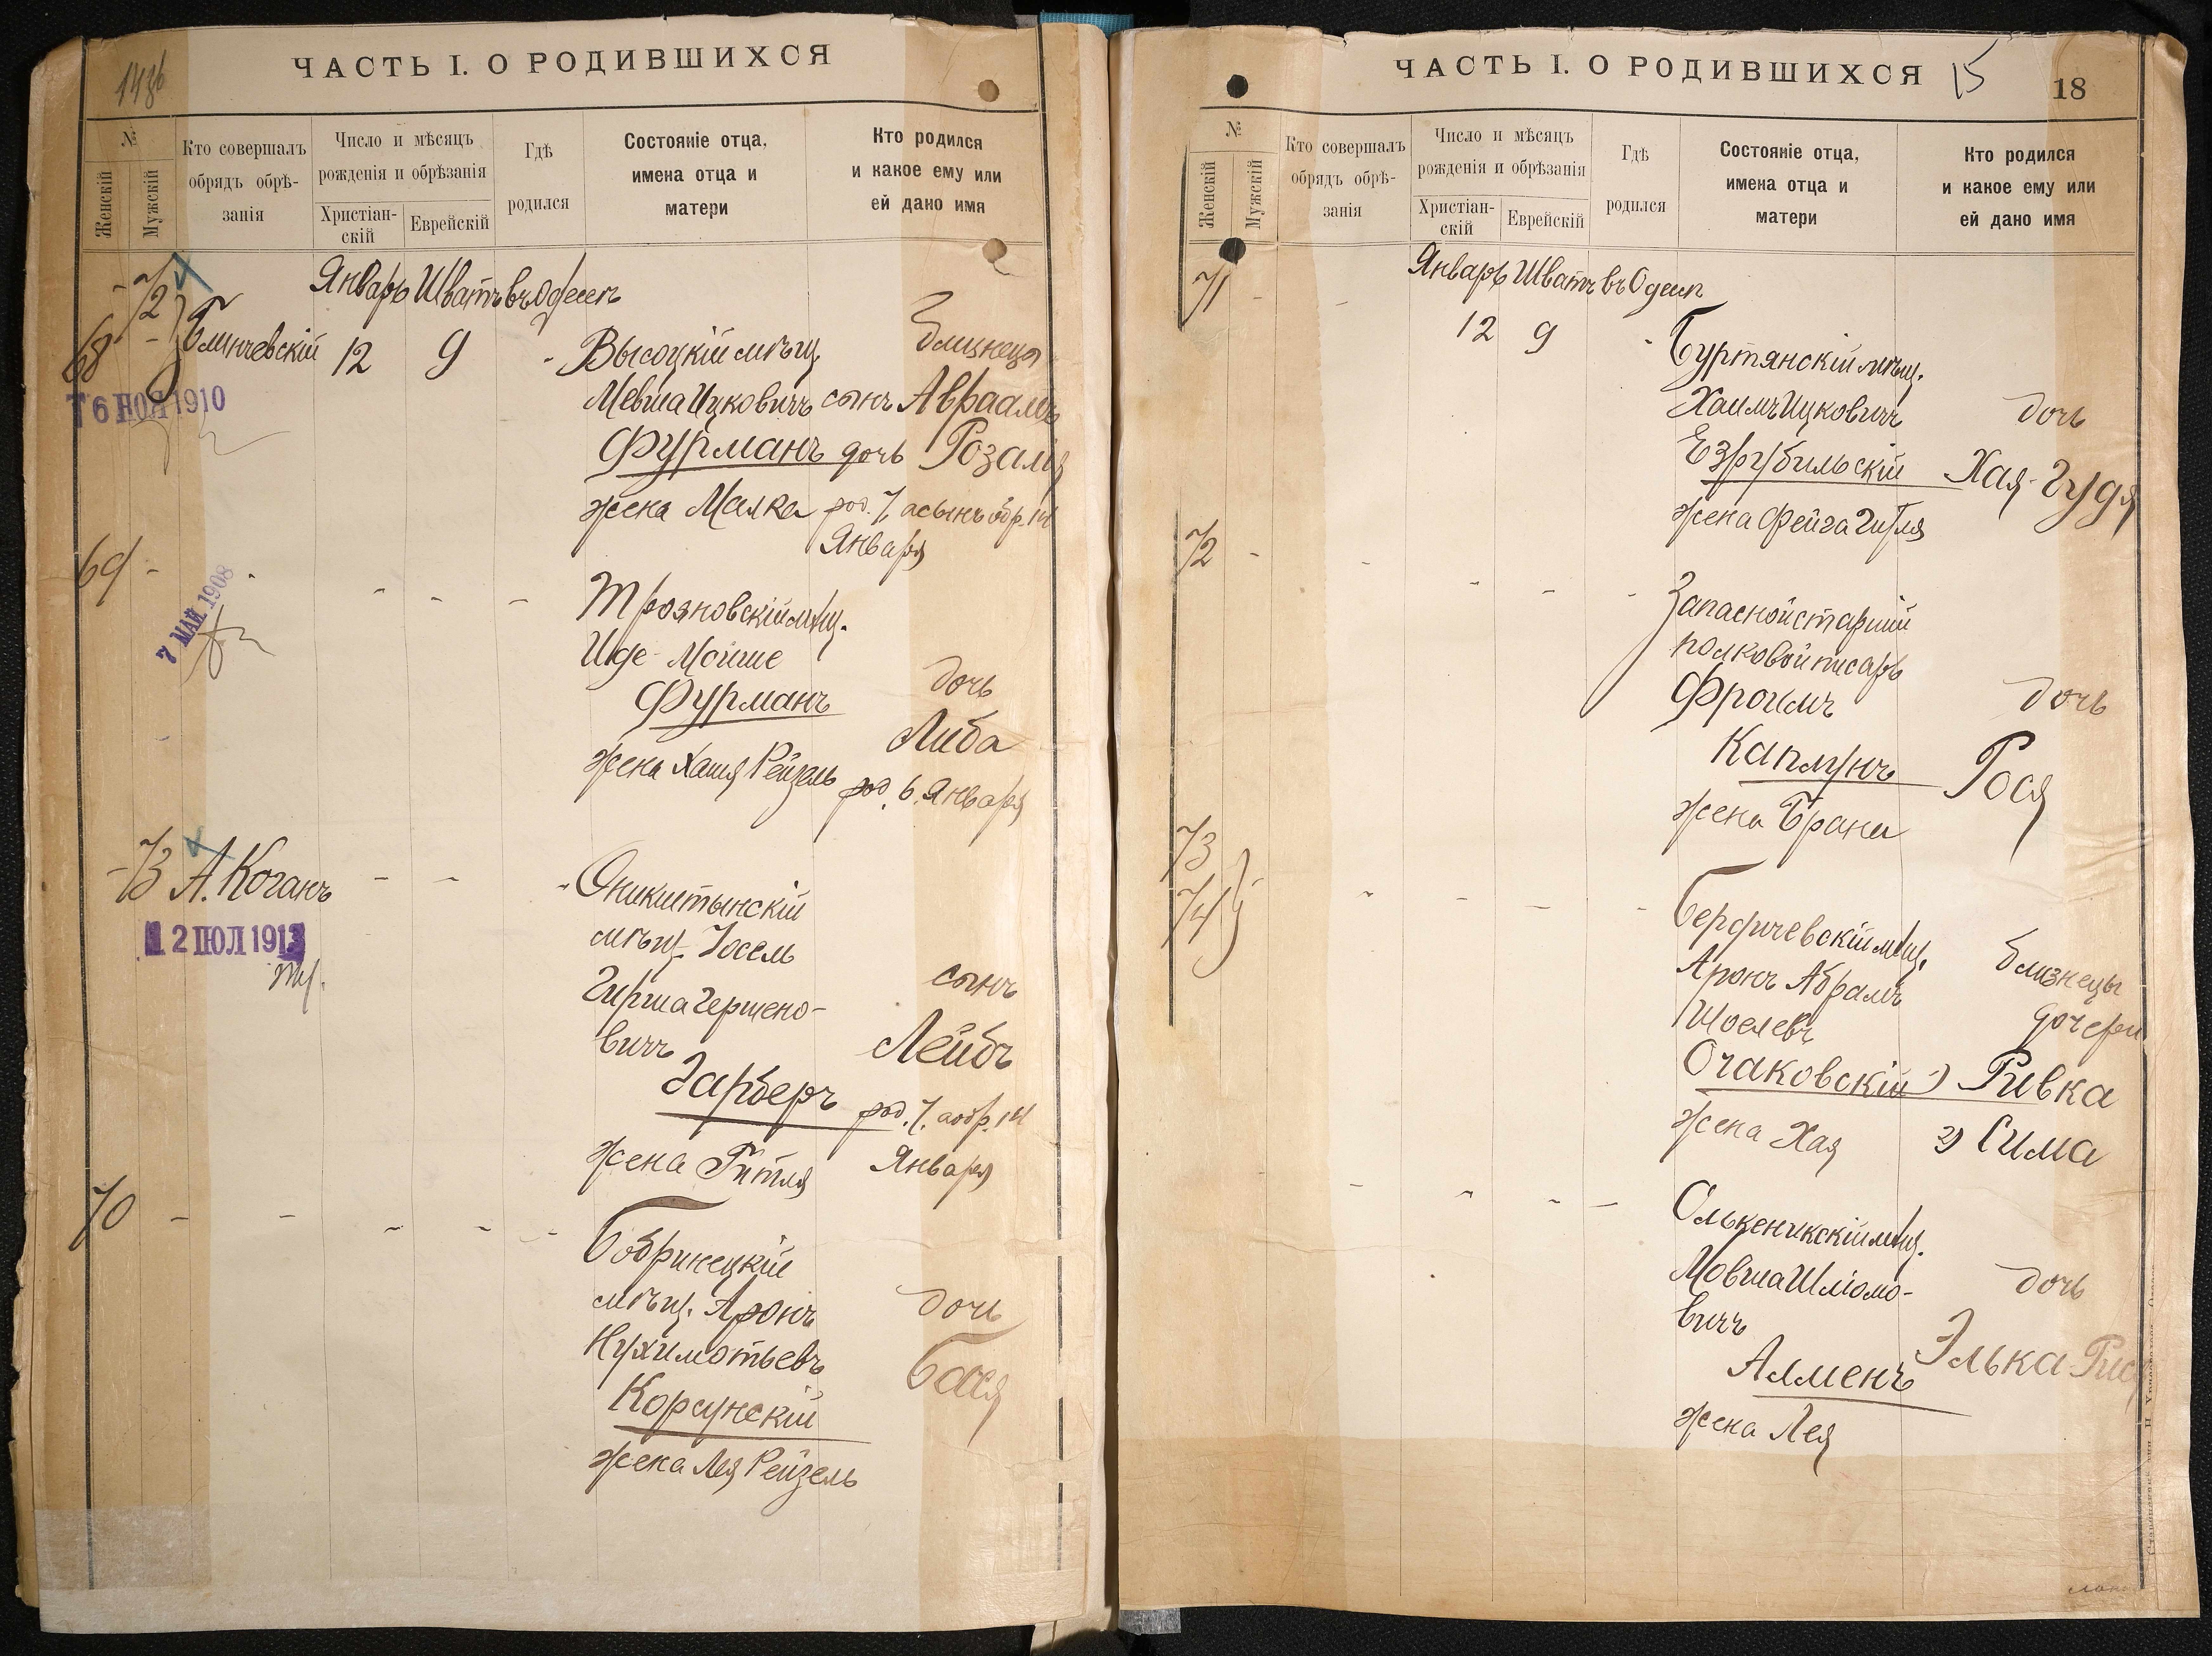 14об
ЧАСТЬ I. О РОДИВШИХСЯ
№
Женскій
Мужскій
Кто совершалъ
обрядъ обрѣ-
занія
Число и мѣсяцъ
рожденія и обрѣзанія
Христіан-
скій
Еврейскій
Гдѣ
родился
Состояніе отца,
имена отца и
матери
Кто родился
и какое ему или
ей дано имя
Январь Шватъ въ Одессѣ
72
68
12 9
Высоцкій мѣщ.
близнецы
16 НОЯ 1910
Мевша Ицковичъ сынъ Авраамъ
Фурманъ дочь Розалія
жена Малка род. 7, а сынъ обр. 14
Января
69
7 МАЙ 1908
Трояновскій мѣщ.
Иде-Мойше
Фурманъ
дочь
Либа
жена Хая Рейзель род. 6. Января
73 А. Коганъ
12 ІЮЛ 1913
Оникштынскій
мѣщ. Іосель
Гирша Гершено-
вичъ
сынъ
Лейбъ
Гарберъ
род. 7. а обр. 14
Января
жена Гитля
70
Бобринецкій
мѣщ. Аронъ
дочь
Бася
Корсунскій
жена Лея Рейзель
ЧАСТЬ I. О РОДИВШИХСЯ
15
18
№
Женскій
Мужскій
Кто совершалъ
обрядъ обрѣ-
занія
Число и мѣсяцъ
рожденія и обрѣзанія
Христіан-
скій
Еврейскій
Гдѣ
родился
Состояніе отца,
имена отца и
матери
Кто родился
и какое ему или
ей дано имя
71
Январь Шватъ въ Одессѣ
12 9
Буртянскій мѣщ.
Хаимъ Ицковичъ
дочь
Езрубильскій
Хая-Гудя
жена Фейга Гитля
72
Запасной старшій
полковой писарь
Фроимъ
дочь
Каплунъ
Рося
жена Брана
73
74
Бердичевскій мѣщ.
Аронъ Абрамъ
близнецы
дочери
Очаковскій 1) Ривка
жена Хая 2) Сима
Олькеникскій мѣщ.
Мовша Шліомо-
вичъ
дочь
Алменъ
Элька
жена Лея